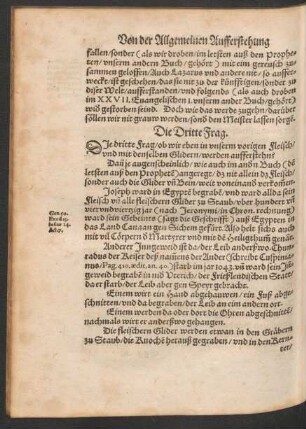 Von der Allgemeinen Aufferstehung
fallen/sonder (als wir droben/im letsten auß den Prophe⸗
ten/vnserm andern Buch/gehört) mit eim gereusch zu⸗
sammen geloffen/Auch Lazarus vnd andere nit/so auffer⸗
weckt/ist geschehen/das sie nit zu der künfftigen/sonder zu
diser Welt/aufferstanden/vnd folgends (als auch droben
im XXVII. Euangelischen l. vnserm ander Buch/gehört)
wid gestorben seind. Doch wie das werde zugehn/darüber
söllen wir nit grauw werden/sond den Meister lassen sorgē.
Die Dritte Frag.
Die dritte Frag/ob wir eben in vnserm vorigen Fleisch/
vnd mit denselben Glidern/werden aufferstehn?
Daū je augenscheinlich/wie auch im andn Buch (dē
letsten auß den Prophetē) angeregt/dz nit allein dz Fleisch/
sonder auch die Glider vñ Bein/weit voneinand verkommē.
Joseph ward in Egypten begrabē/vnd ward allda sein
Fleisch vñ alle fleischern Glider zu Staub/vber hundert vñ
viertzig jar (nach
ward sein Gebeinte (sagt die Geschrifft) auß Egypten in
das Land Canaan gen Sichem gefürt. Also helt sichs auch
mit vil Cörpern d Martyrer vnd mit dē Heiligthum genāt.
Anderer
durus der Keiser
nus/Pag. 410. & dan. 40.) starb im jar 1043. vñ ward sein
gewend begrabē in vñ Vtrich/der Frießlenischen Statt/
da er starb/der Leib aber gen Speyr gebracht.
Einem wirt ein Hand abgehauwen/ein Fuß abge⸗
schnitten/vnd da begraben/der Leib an ein andern ort.
Einem werden da oder dort die Ohren abgeschnitten/
nachmals wirt er anderßwo gehangen.
Die fleischern Glider werden etwan in den Gräbern
zu Staub/die Knochē herauß gegraben/vnd in den Kern⸗
ter/